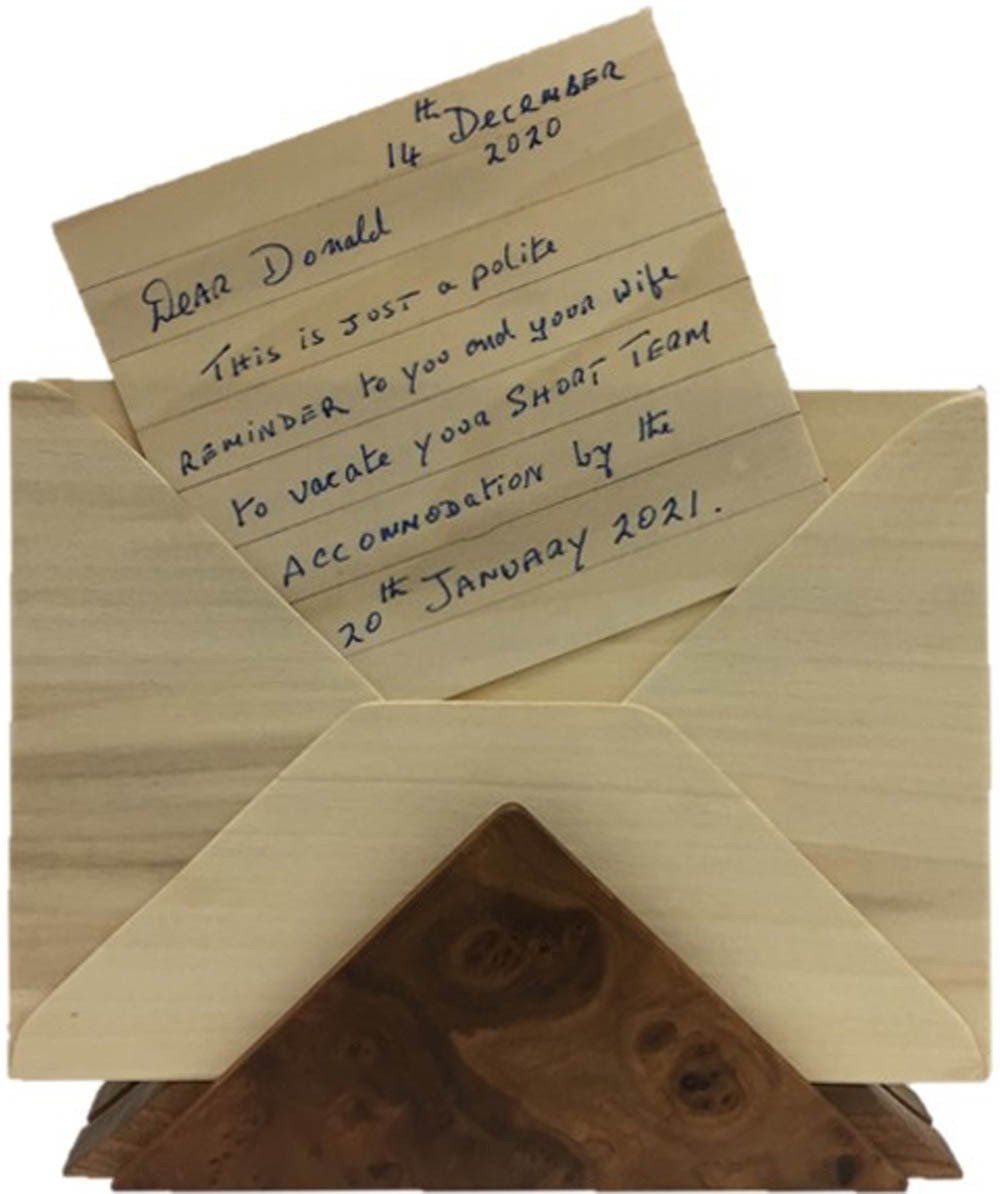 14th December
2020
Dear Donald
This is just a polite
reminder to you and your wife
to vacate your short term
accommodation by the
20th January 2021.